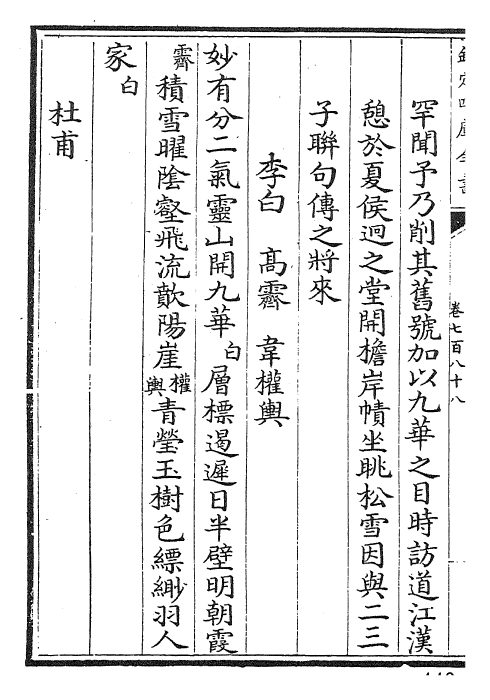 欽定四庫全書
卷七百八十八
罕聞予乃削其舊號加以九華之目時訪道江漢
憩於夏侯迥之堂開檐岸幘坐眺松雪因與二三
子聯句傳之將來
李白 高霽 韋權輿
妙有分二氣靈山開九華白層標遏遲日半壁明朝霞
霽積雪曜陰壑飛流歕陽崖權輿青瑩玉樹色縹緲羽人
家白
杜甫